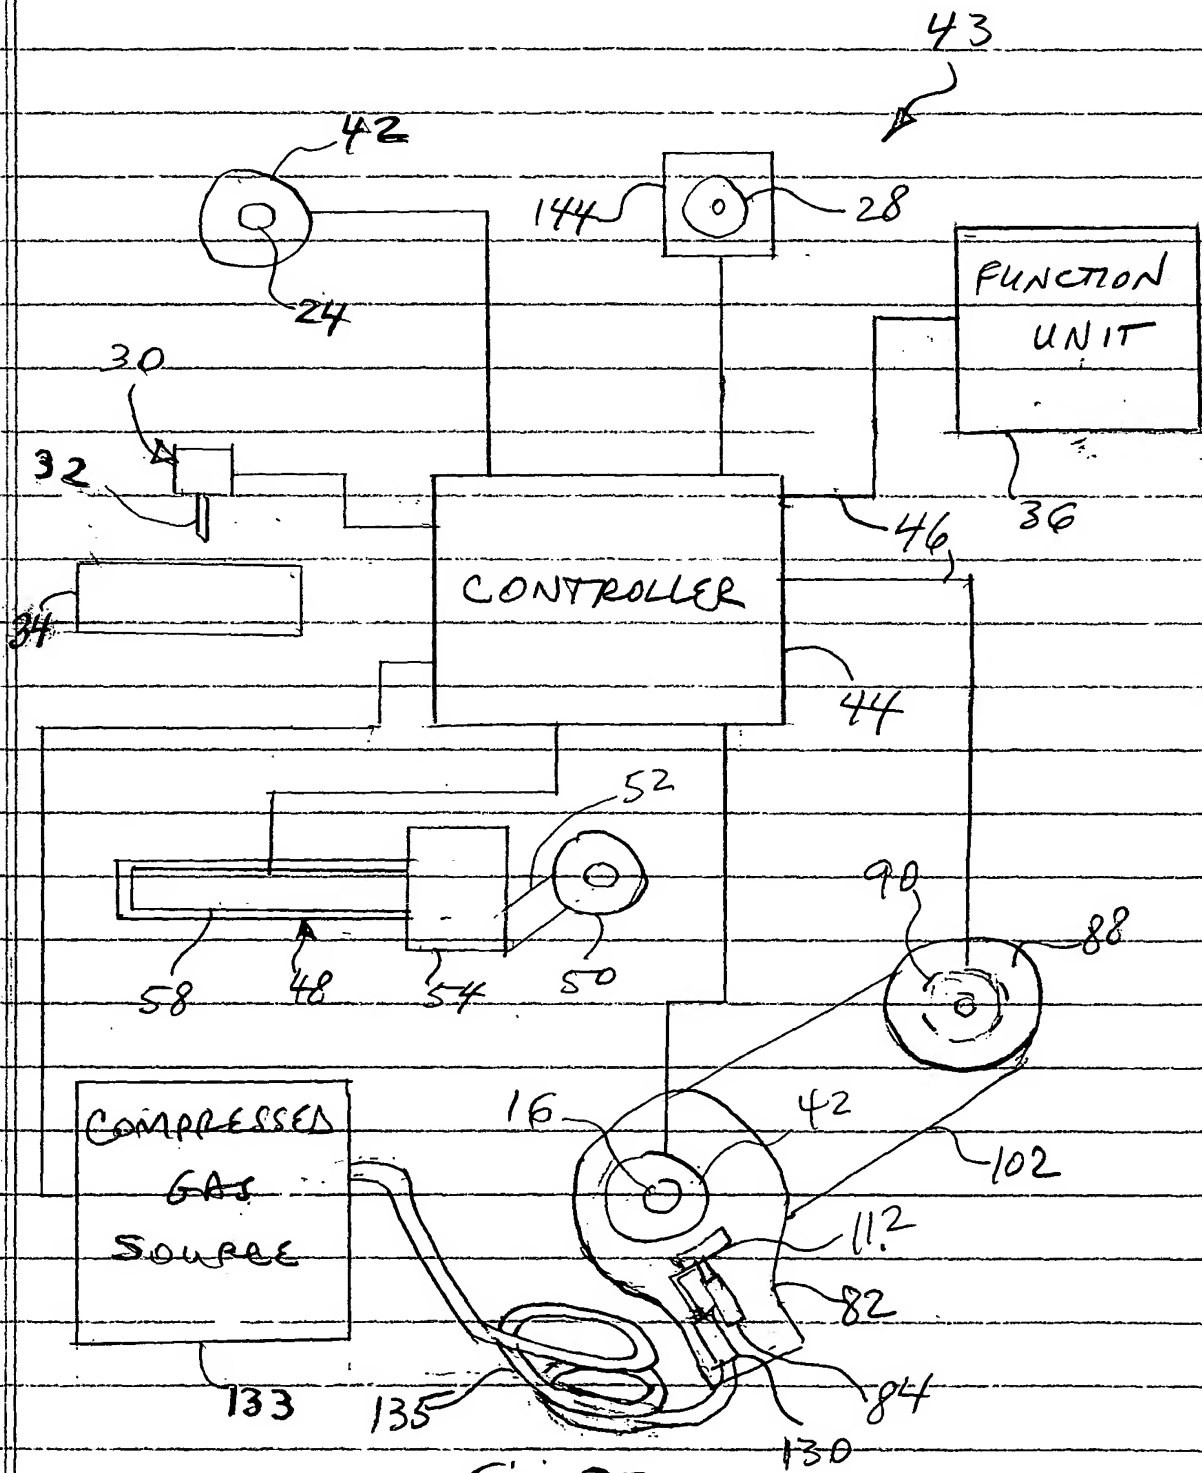 43
42
144
28
24
FUNCTION
UNIT
30
32
46
36
CONTROLLER
34
44
52
90
88
58
48
54
50
COMPRESSED
GAS
SOURCE
16
42
102
112
82
133
135
84
130